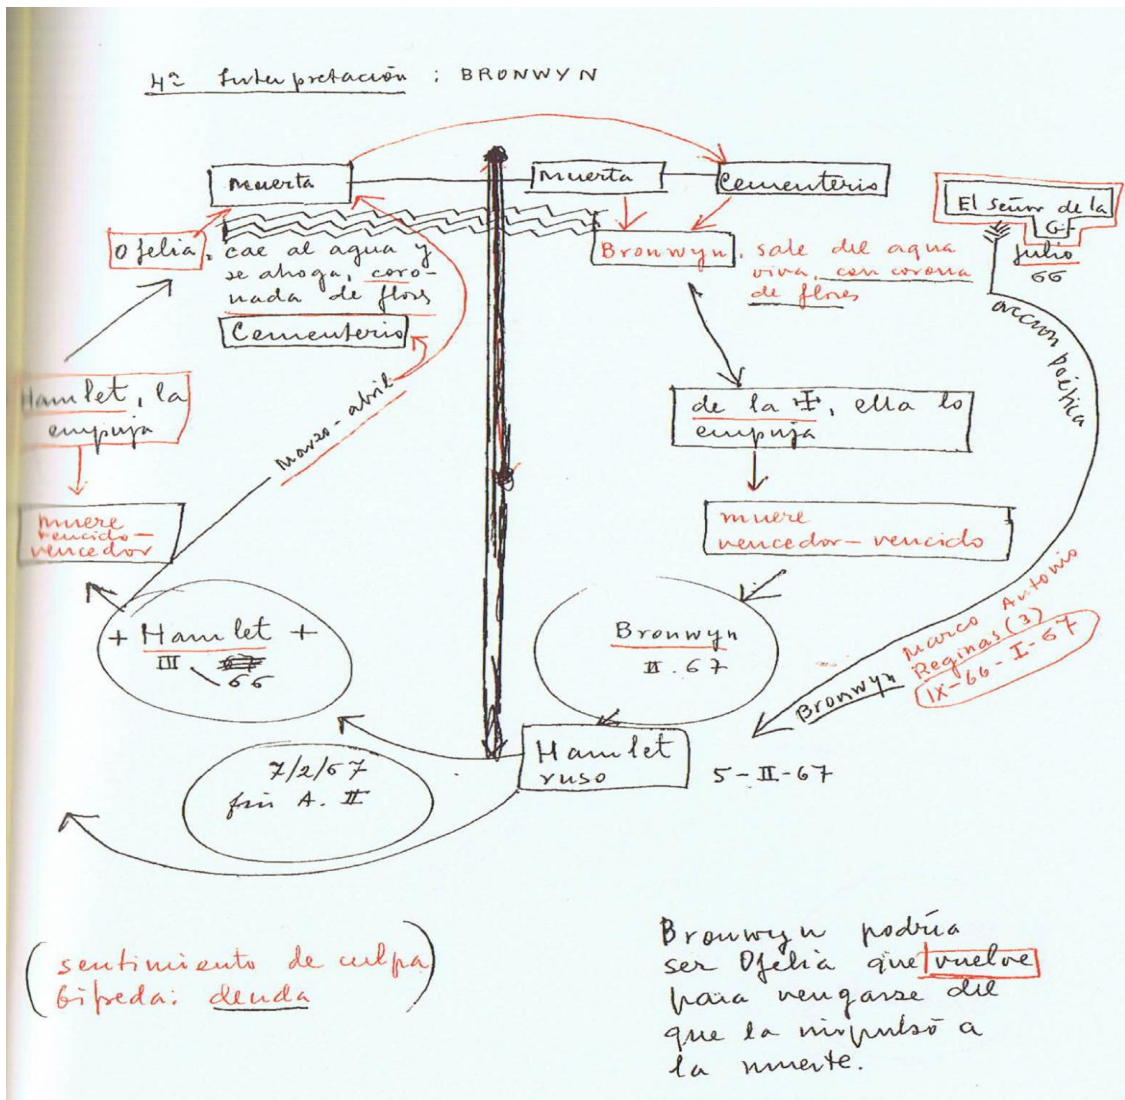 4ª Interpretación : BRONWYN
muerta
muerta
cementerio
Ofelia, cae al agua y
se ahoga, coro-
nada de flores
Cementerio
Bronwyn, sale del agua
viva, con corona
de flores
El señor de la
G.
Julio
66
acción poética
Hamlet, la
empuja
marzo-abril
de la I, ella lo
empuja
muere
vencido-
vencedor
muere
vencedor-vencido
+ Hamlet +
III
66
Bronwyn
II. 67
Bronwyn
Marco Antonio
Reginas (3)
IX-66-I-67
Hamlet
ruso
5-II-67
7/2/67
fin A. II
(sentimiento de culpa
bípeda: deuda)
Bronwyn podría
ser Ofelia que vuelve
para vengarse del
que la impulsó a
la muerte.